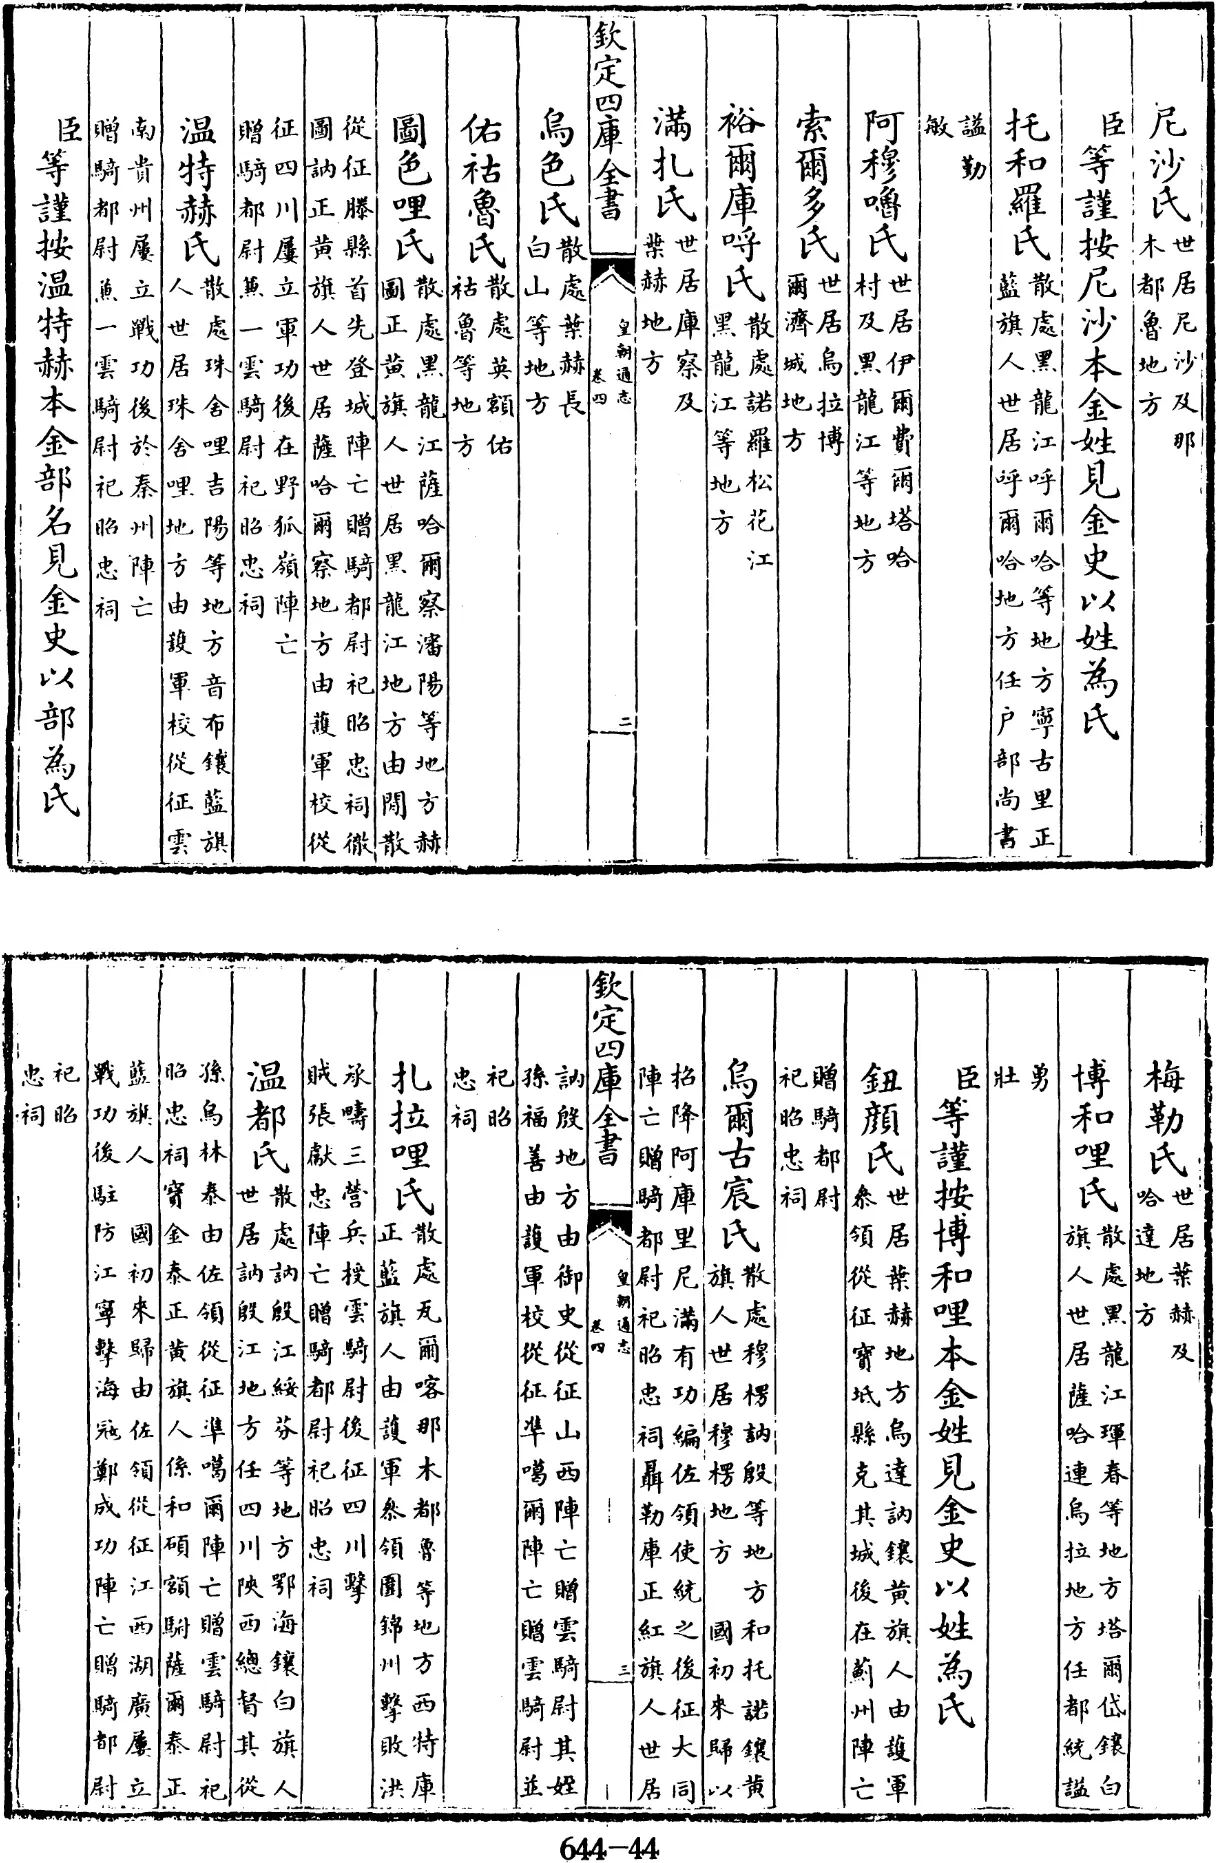 尼沙氏世居尼沙及那
木都魯地方
臣等謹按尼沙本金姓見金史以姓為氏
托和羅氏散處黑龍江呼爾哈等地方寧古里正
藍旗人世居呼爾哈地方任户部尚書
諡勤
敏
阿穆嚕氏世居伊爾費爾塔哈
村及黑龍江等地方
索爾多氏世居烏拉博
爾濟城地方
裕爾庫呼氏散處諾羅松花江
黑龍江等地方
滿扎氏世居庫察及
葉赫地方
欽定四庫全書
皇朝通志
卷四
二
烏色氏散處葉赫長
白山等地方
佑祜魯氏散處英額佑
祜魯等地方
圖色哩氏散處黑龍江薩哈爾察瀋陽等地方赫
圖正黃旗人世居黑龍江地方由閒散
從征滕縣首先登城陣亡贈騎都尉祀昭忠祠徹
圖訥正黃旗人世居薩哈爾察地方由護軍校從
征四川屢立軍功後在野狐嶺陣亡
贈騎都尉兼一雲騎尉祀昭忠祠
温特赫氏散處珠舍哩吉陽等地方音布鑲藍旗
人世居珠舍哩地方由護軍校從征雲
南貴州屢立戰功後於秦州陣亡
贈騎都尉兼一雲騎尉祀昭忠祠
臣等謹按温特赫本金部名見金史以部為氏
梅勒氏世居葉赫及
哈達地方
博和哩氏散處黑龍江琿春等地方塔爾岱鑲白
旗人世居薩哈連烏拉地方任都統諡
勇
壯
臣等謹按博和哩本金姓見金史以姓為氏
鈕顔氏世居葉赫地方烏達訥鑲黃旗人由護軍
叅領從征寶坻縣克其城後在薊州陣亡
贈騎都尉
祀昭忠祠
烏爾古宸氏散處穆楞訥殷等地方和托諾鑲黃
旗人世居穆楞地方 國初來歸以
招降阿庫里尼滿有功編佐領使統之後征大同
陣亡贈騎都尉祀昭忠祠聶勒庫正紅旗人世居
欽定四庫全書
皇朝通志
卷四
三
訥殷地方由御史從征山西陣亡贈雲騎尉其姪
孫福善由護軍校從征凖噶爾陣亡贈雲騎尉並
祀昭
忠祠
扎拉哩氏散處瓦爾喀那木都魯等地方西特庫
正藍旗人由護軍叅領圍錦州擊敗洪
承疇三營兵授雲騎尉後征四川擊
賊張獻忠陣亡贈騎都尉祀昭忠祠
温都氏散處訥殷江綏芬等地方鄂海鑲白旗人
世居訥殷江地方任四川陝西總督其從
孫烏林泰由佐領從征凖噶爾陣亡贈雲騎尉祀
昭忠祠寶金泰正黃旗人係和碩額駙薩爾泰正
藍旗人 國初來歸由佐領從征江西湖廣屢立
戰功後駐防江寧擊海寇鄭成功陣亡贈騎都尉
祀昭
忠祠
644-44